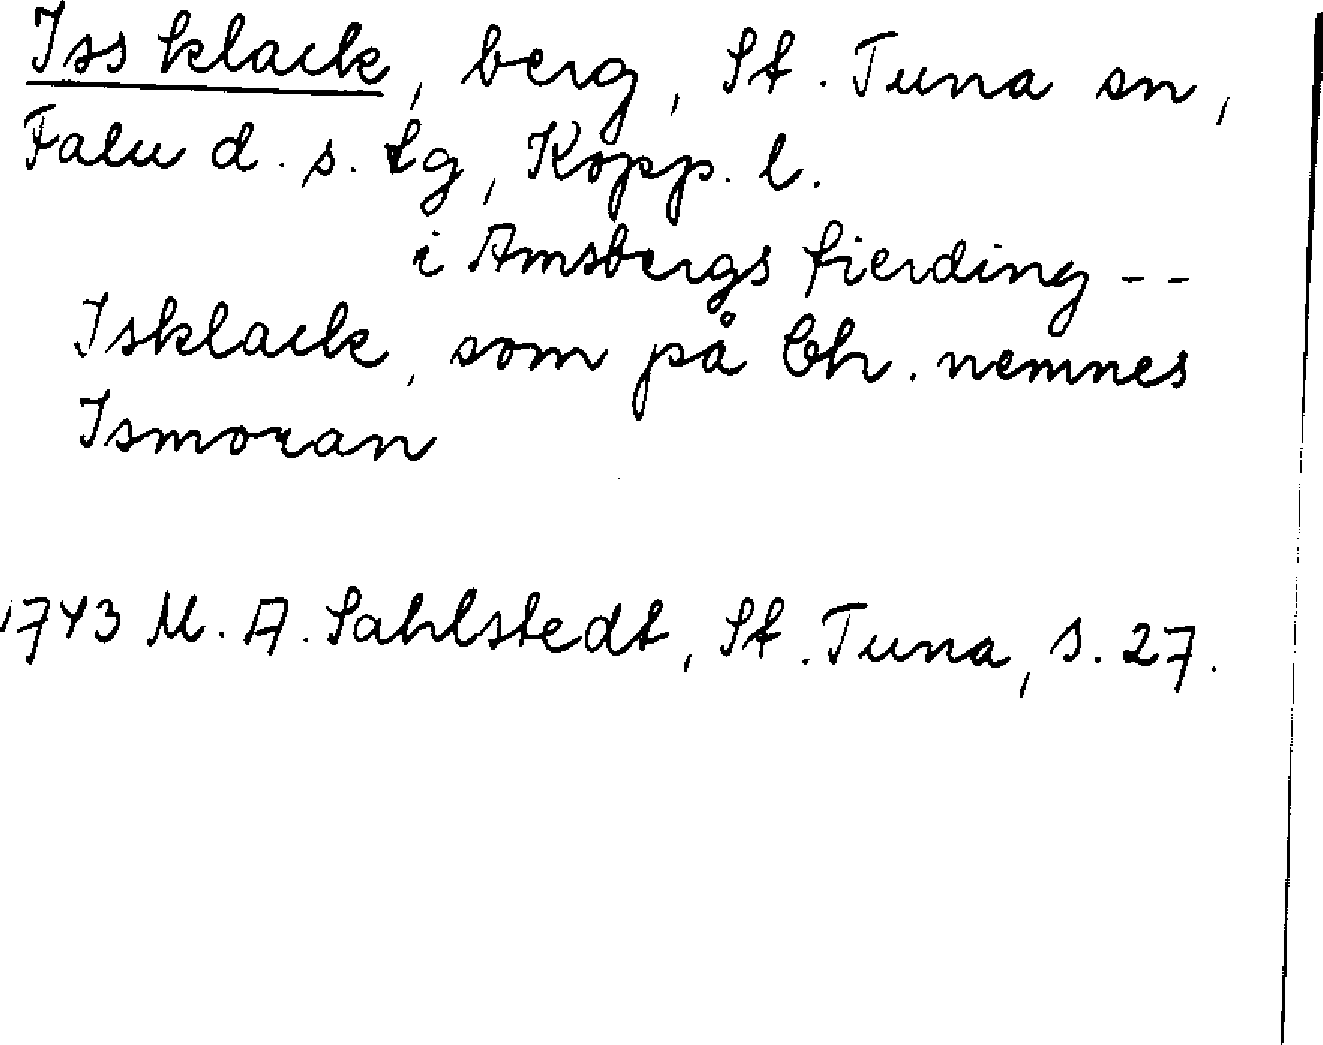 Iss klack, berg, St. Tuna sn,
Falu d. s. tg, Kopp. l.
i Amsbergs fierding --
Isklack, som på Ch. nemnes
Ismoran
1743 M. A. Sahlstedt, St. Tuna, s. 27.